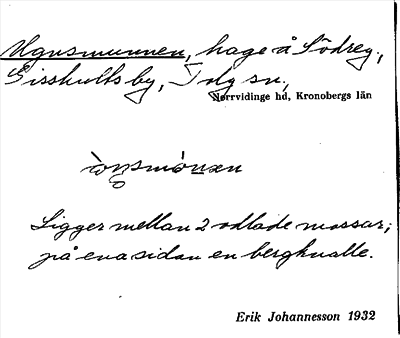 Ugnsmunnen, hage å Södreg.,
Gisshults by, Tolg sn,
Norrvidinge hd, Kronobergs län
Ligger mellan 2 odlade mossar;
på ena sidan en bergknalle.
Erik Johannesson 1932